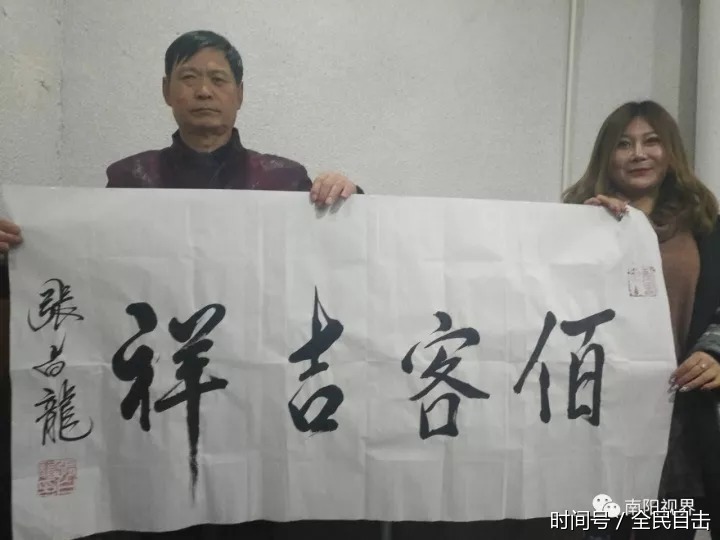 佰客吉祥
張昌龍
南阳视界
时间号 / 全民目击